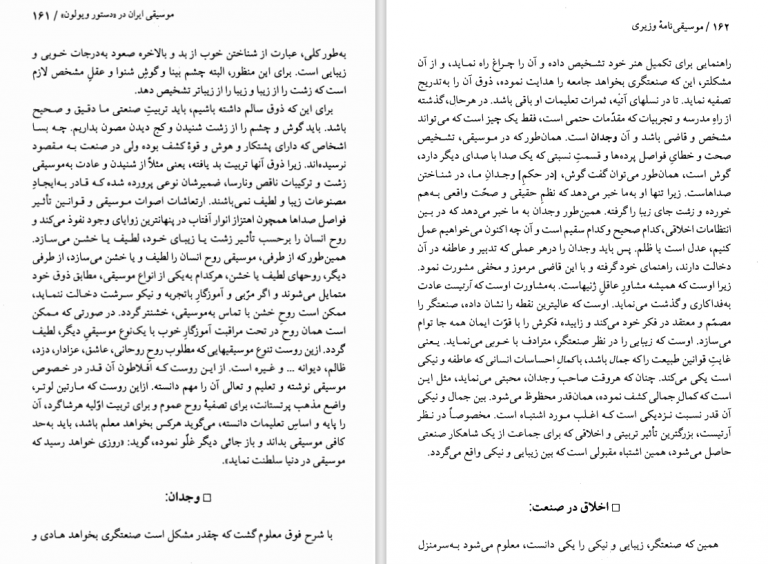 موسیقی ایران در «دستور ویولون» / ۱۶۱
به‌طور کلی، عبارت از شناختن خوب از بد و بالاخره صعود به‌درجات خوبی و
زیبایی است. برای این منظور، البته چشم بینا و گوشِ شنوا و عقلِ مشخص لازم
است که زشت را از زیبا و زیبا را از زیباتر تشخیص دهد.
برای این که ذوق سالم داشته باشیم، باید تربیتِ صنعتی ما دقیق و صحیح
باشد. باید گوش و چشم را از زشت شنیدن و کج دیدن مصون بداریم. چه بسا
اشخاص که دارای پشتکار و هوش و قوهٔ کشف بوده ولی در صنعت به مقصود
نرسیده‌اند. زیرا ذوق آنها تربیت بد یافته، یعنی مثلاً از شنیدن و عادت به‌موسیقی
زشت و ترکیبات ناقص ونارسا، ضمیرشان نوعی پرورده شده که قادر به‌ایجادِ
مصنوعات زیبا و لطیف نمی‌باشند. ارتعاشات اصوات موسیقی و قوانین تأثیر
فواصل صداها همچون اهتزاز انوار آفتاب در پنهانترین زوایای وجود نفوذ می‌کند و
روح انسان را برحسب تأثیر زشت یا زیبای خود، لطیف یا خشن می‌سازد.
همین‌طور که از طرفی، موسیقی روح انسان را لطیف و یا خشن می‌سازد، از طرفی
دیگر، روحهای لطیف یا خشن، هرکدام به‌یکی از انواع موسیقی، مطابق ذوق خود
متمایل می‌شوند و اگر مرّبی و آموزگار باتجربه و نیکو سرشت دخالت ننماید،
ممکن است روحِ خشن با تماس به‌موسیقی، خشنتر گردد. در صورتی که ممکن
است همان روح در تحت مراقبت آموزگار خوب با یک‌نوع موسیقیِ دیگر، لطیف
گردد. ازین روست تنوع موسیقیهایی که مطلوب روحِ روحانی، عاشق، عزادار، دزد،
ظالم، دیوانه ... و غیره است. از این روست که افلاطون آن قدر در خصوص
موسیقی نوشته و تعلیم و تعالی آن را مهم دانسته. ازاین روست که مارتین لوتر،
واضع مذهب پرتستانت، برای تصفیهٔ روحِ عموم و برای تربیت اوّلیه هرشاگرد، آن
را پایه و اساسِ تعلیمات دانسته، می‌گوید هرکس بخواهد معلم باشد، باید به‌حد
کافی موسیقی بداند و باز جائی دیگر غلّو نموده، گوید: «روزی خواهد رسید که
موسیقی در دنیا سلطنت نماید».
□ وجدان:
با شرح فوق معلوم گشت که چقدر مشکل است صنعتگری بخواهد هادی و
۱۶۲ / موسیقی‌نامهٔ وزیری
راهنمایی برای تکمیل هنر خود تشخیص داده و آن را چراغ راه نماید، و از آن
مشکلتر، این که صنعتگری بخواهد جامعه را هدایت نموده، ذوق آن را به‌تدریج
تصفیه نماید. تا در نسلهای آتیه، ثمرات تعلیمات او باقی باشد. در هرحال، گذشته
از راهِ مدرسه و تجربیات که مقدّمات حتمی است، فقط یک چیز است که می‌تواند
مشخص و قاضی باشد و آن وجدان است. همان‌طور که در موسیقی، تشخیص
صحت و خطایِ فواصل پرده‌ها و قسمتِ نسبتی که یک صدا با صدای دیگر دارد،
گوش است، همان‌طور می‌توان گفت گوش، [در حکمِ] وجدانِ ما، در شناختن
صداهاست. زیرا تنها او به‌ما خبر می‌دهد که نظمِ حقیقی و صحّت واقعی به‌هم
خورده و زشت جای زیبا را گرفته. همین‌طور وجدان به ما خبر می‌دهد که در بین
انتظامات اخلاقی، کدام صحیح و کدام سقیم است و آن چه اکنون می‌خواهیم عمل
کنیم، عدل است یا ظلم. پس باید وجدان را درهر عملی که تدبیر و عاطفه در آن
دخالت دارند، راهنمای خود گرفته و با این قاضی مرموز و مخفی مشورت نمود.
زیرا اوست که همیشه مشاورِ عاقلِ ژنیهاست. به‌مشاورت اوست که آرتیست عادت
به‌فداکاری و گذشت می‌نماید. اوست که عالیترین نقطه را نشان داده، صنعتگر را
مصمّم و معتقد در فکر خود می‌کند و زاییده فکرش را با قوّت ایمان همه جا توأم
می‌سازد. اوست که زیبایی را در نظر صنعتگر، مترادف با خوبی می‌نماید. یعنی
غایتِ قوانین طبیعت را که جمال باشد، باکمالِ احساسات انسانی که عاطفه و نیکی
است یکی می‌کند. چنان که هروقت صاحب وجدان، محبتی می‌نماید، مثل این
است که کمال جمالی کشف نموده، همان‌قدر محظوظ می‌شود. بین جمال و نیکی
آن قدر نسبت نزدیکی است که اغلب مورد اشتباه است. مخصوصاً در نظر
آرتیست، بزرگترین تأثیر تربیتی و اخلاقی که برای جماعت از یک شاهکار صنعتی
حاصل می‌شود، همین اشتباه مقبولی است که بین زیبایی و نیکی واقع می‌گردد.
□ اخلاق در صنعت:
همین که صنعتگر، زیبایی و نیکی را یکی دانست، معلوم می‌شود به‌سرمنزل